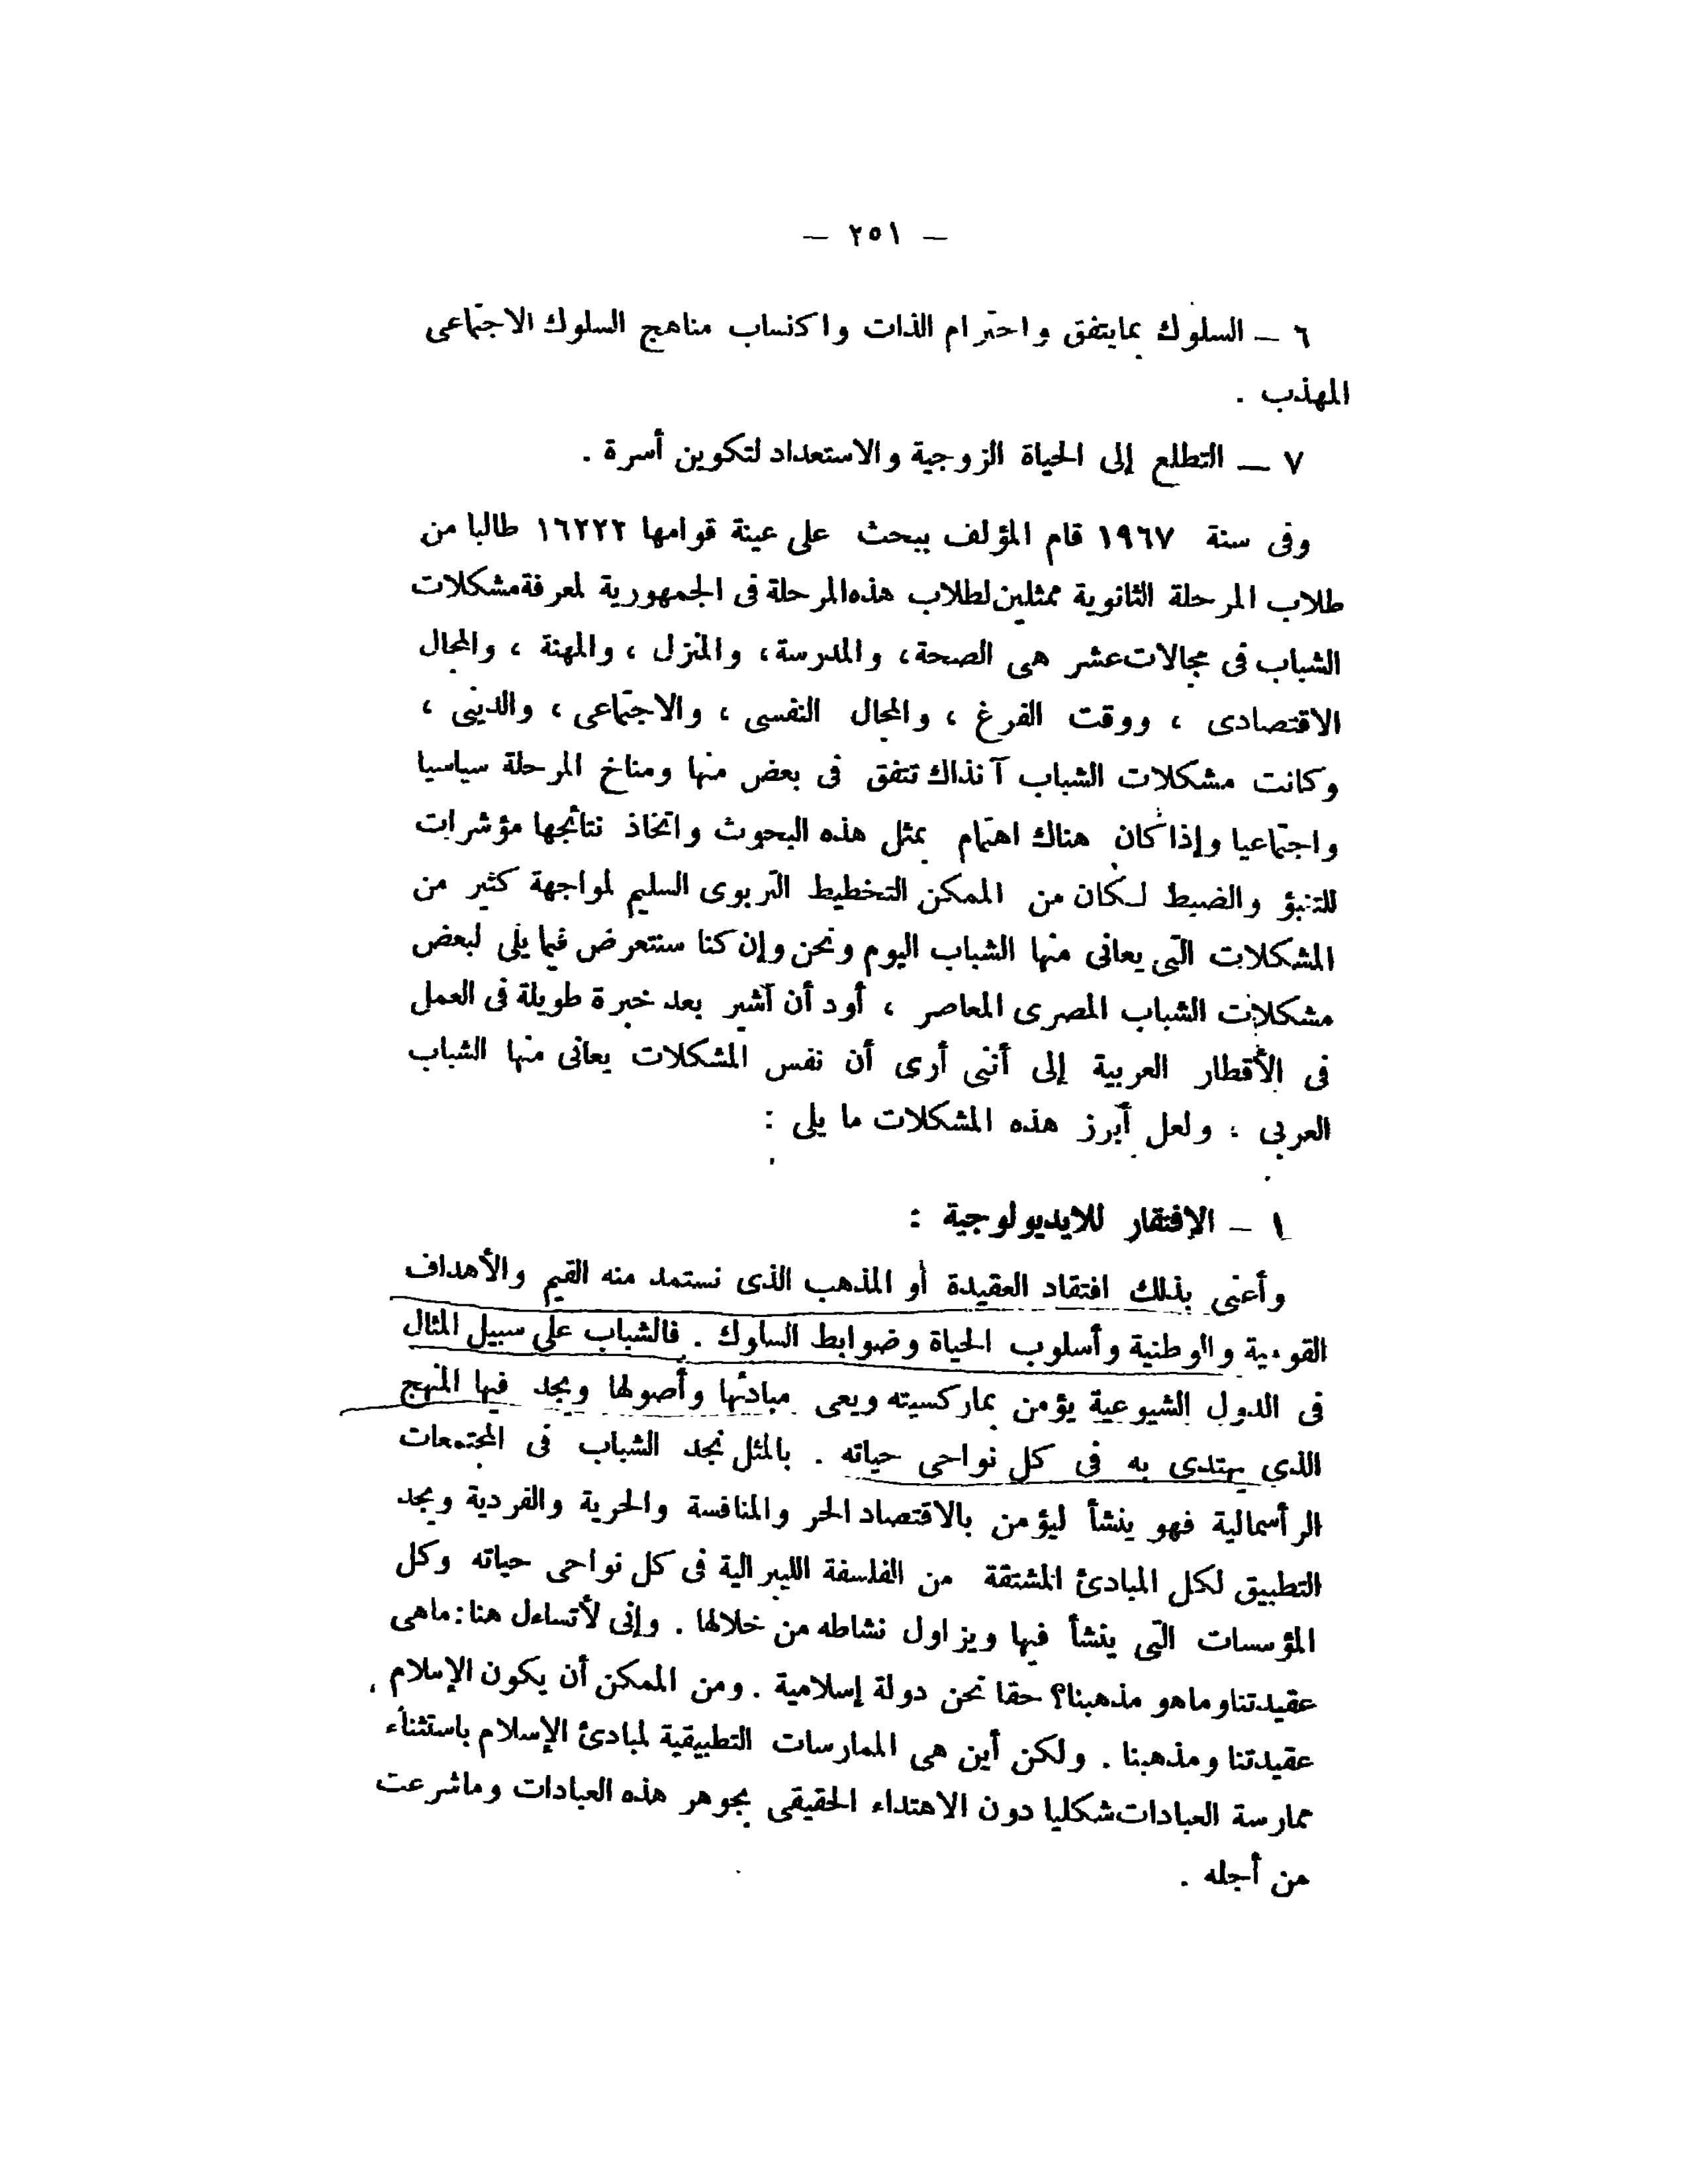 — ٢٥١ —
٦ — السلوك بما يتفق واحترام الذات واكتساب مناهج السلوك الاجتماعى
المهذب .
٧ — التطلع إلى الحياة الزوجية والاستعداد لتكوين أسرة .
وفى سنة ١٩٦٧ قام المؤلف ببحث على عينة قوامها ١٦٢٢٢ طالبا من
طلاب المرحلة الثانوية ممثلين لطلاب هذه المرحلة فى الجمهورية لمعرفة مشكلات
الشباب فى مجالات عشر هى الصحة، والمدرسة، والمنزل ، والمهنة ، والمجال
الاقتصادى ، ووقت الفرغ ، والمجال النفسى ، والاجتماعى ، والدينى ،
وكانت مشكلات الشباب آنذاك تتفق فى بعض منها ومناخ المرحلة سياسيا
واجتماعيا وإذا كان هناك اهتمام بمثل هذه البحوث واتخاذ نتائجها مؤشرات
للتنبؤ والضبط لكان من الممكن التخطيط التربوى السليم لمواجهة كثير من
المشكلات التى يعانى منها الشباب اليوم ونحن وإن كنا سنتعرض فيما يلى لبعض
مشكلات الشباب المصرى المعاصر ، أود أن أشير بعد خبرة طويلة فى العمل
فى الأقطار العربية إلى أننى أرى أن نفس المشكلات يعانى منها الشباب
العربى ؛ ولعل أبرز هذه المشكلات ما يلى :
١ — الإفتقار للايديولوجية :
وأعنى بذلك افتقاد العقيدة أو المذهب الذى نستمد منه القيم والأهداف
القومية والوطنية وأسلوب الحياة وضوابط السلوك . فالشباب على سبيل المثال
فى الدول الشيوعية يؤمن بماركسيته ويعى مبادئها وأصولها ويجد فيها المنهج
الذي يهتدى به فى كل نواحى حياته . بالمثل نجد الشباب فى المجتمعات
الرأسمالية فهو ينشأ ليؤمن بالاقتصاد الحر والمنافسة والحرية والفردية ويجد
التطبيق لكل المبادئ المشتقة من الفلسفة الليبرالية فى كل نواحى حياته وكل
المؤسسات التى ينشأ فيها ويزاول نشاطه من خلالها . وإنى لأتساءل هنا : ماهى
عقيدتنا وماهو مذهبنا؟ حقا نحن دولة إسلامية . ومن الممكن أن يكون الإسلام
عقيدتنا ومذهبنا . ولكن أين هى الممارسات التطبيقية لمبادئ الإسلام باستثناء
ممارسة العبادات شكليا دون الاهتداء الحقيقى بجوهر هذه العبادات وماشرعت
من أجله .